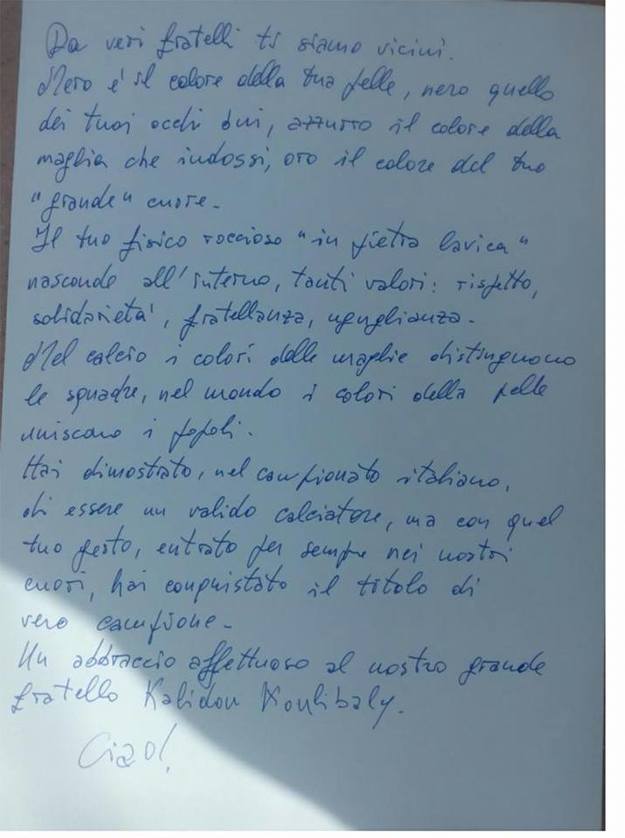 Da veri fratelli ti siamo vicini.
Nero è il colore della tua pelle, nero quello
dei tuoi occhi bui, azzurro il colore della
maglia che indossi, oro il colore del tuo
"grande" cuore.
Il tuo fisico roccioso "in pietra lavica"
nasconde all'interno, tanti valori: rispetto,
solidarietà, fratellanza, uguglianza.
Nel calcio i colori delle maglie distinguono
le squadre, nel mondo i colori della pelle
uniscono i popoli.
Hai dimostrato, nel campionato italiano,
di essere un valido calciatore, ma con quel
tuo gesto, entrato per sempre nei nostri
cuori, hai conquistato il titolo di
vero campione.
Un abbraccio affettuoso al nostro grande
fratello Kalidou Koulibaly.
Ciao!